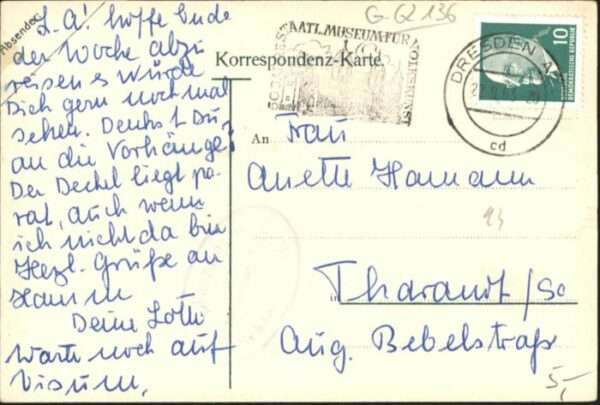 Absender
L. A! hoffe Ende
der Woche abzu
reisen es würde
Dich gern nochmal
sehen. Denkst Du
an die Vorhänge?
Der Deckel liegt pa-
rat, auch wenn
ich nicht da bin
Herzl. Grüße an
Deine Lotte
warte noch auf
Visum,
G-GZ 136
STAATL. MUSEUM FÜR VOLKSKUNST
Korrespondenz-Karte.
DRESDEN A
cd
10
DEMOKRATISCHE REPUBLIK
An Frau
Anette Hamann
Tharandt/Sa
Aug. Bebelstraße
5,-